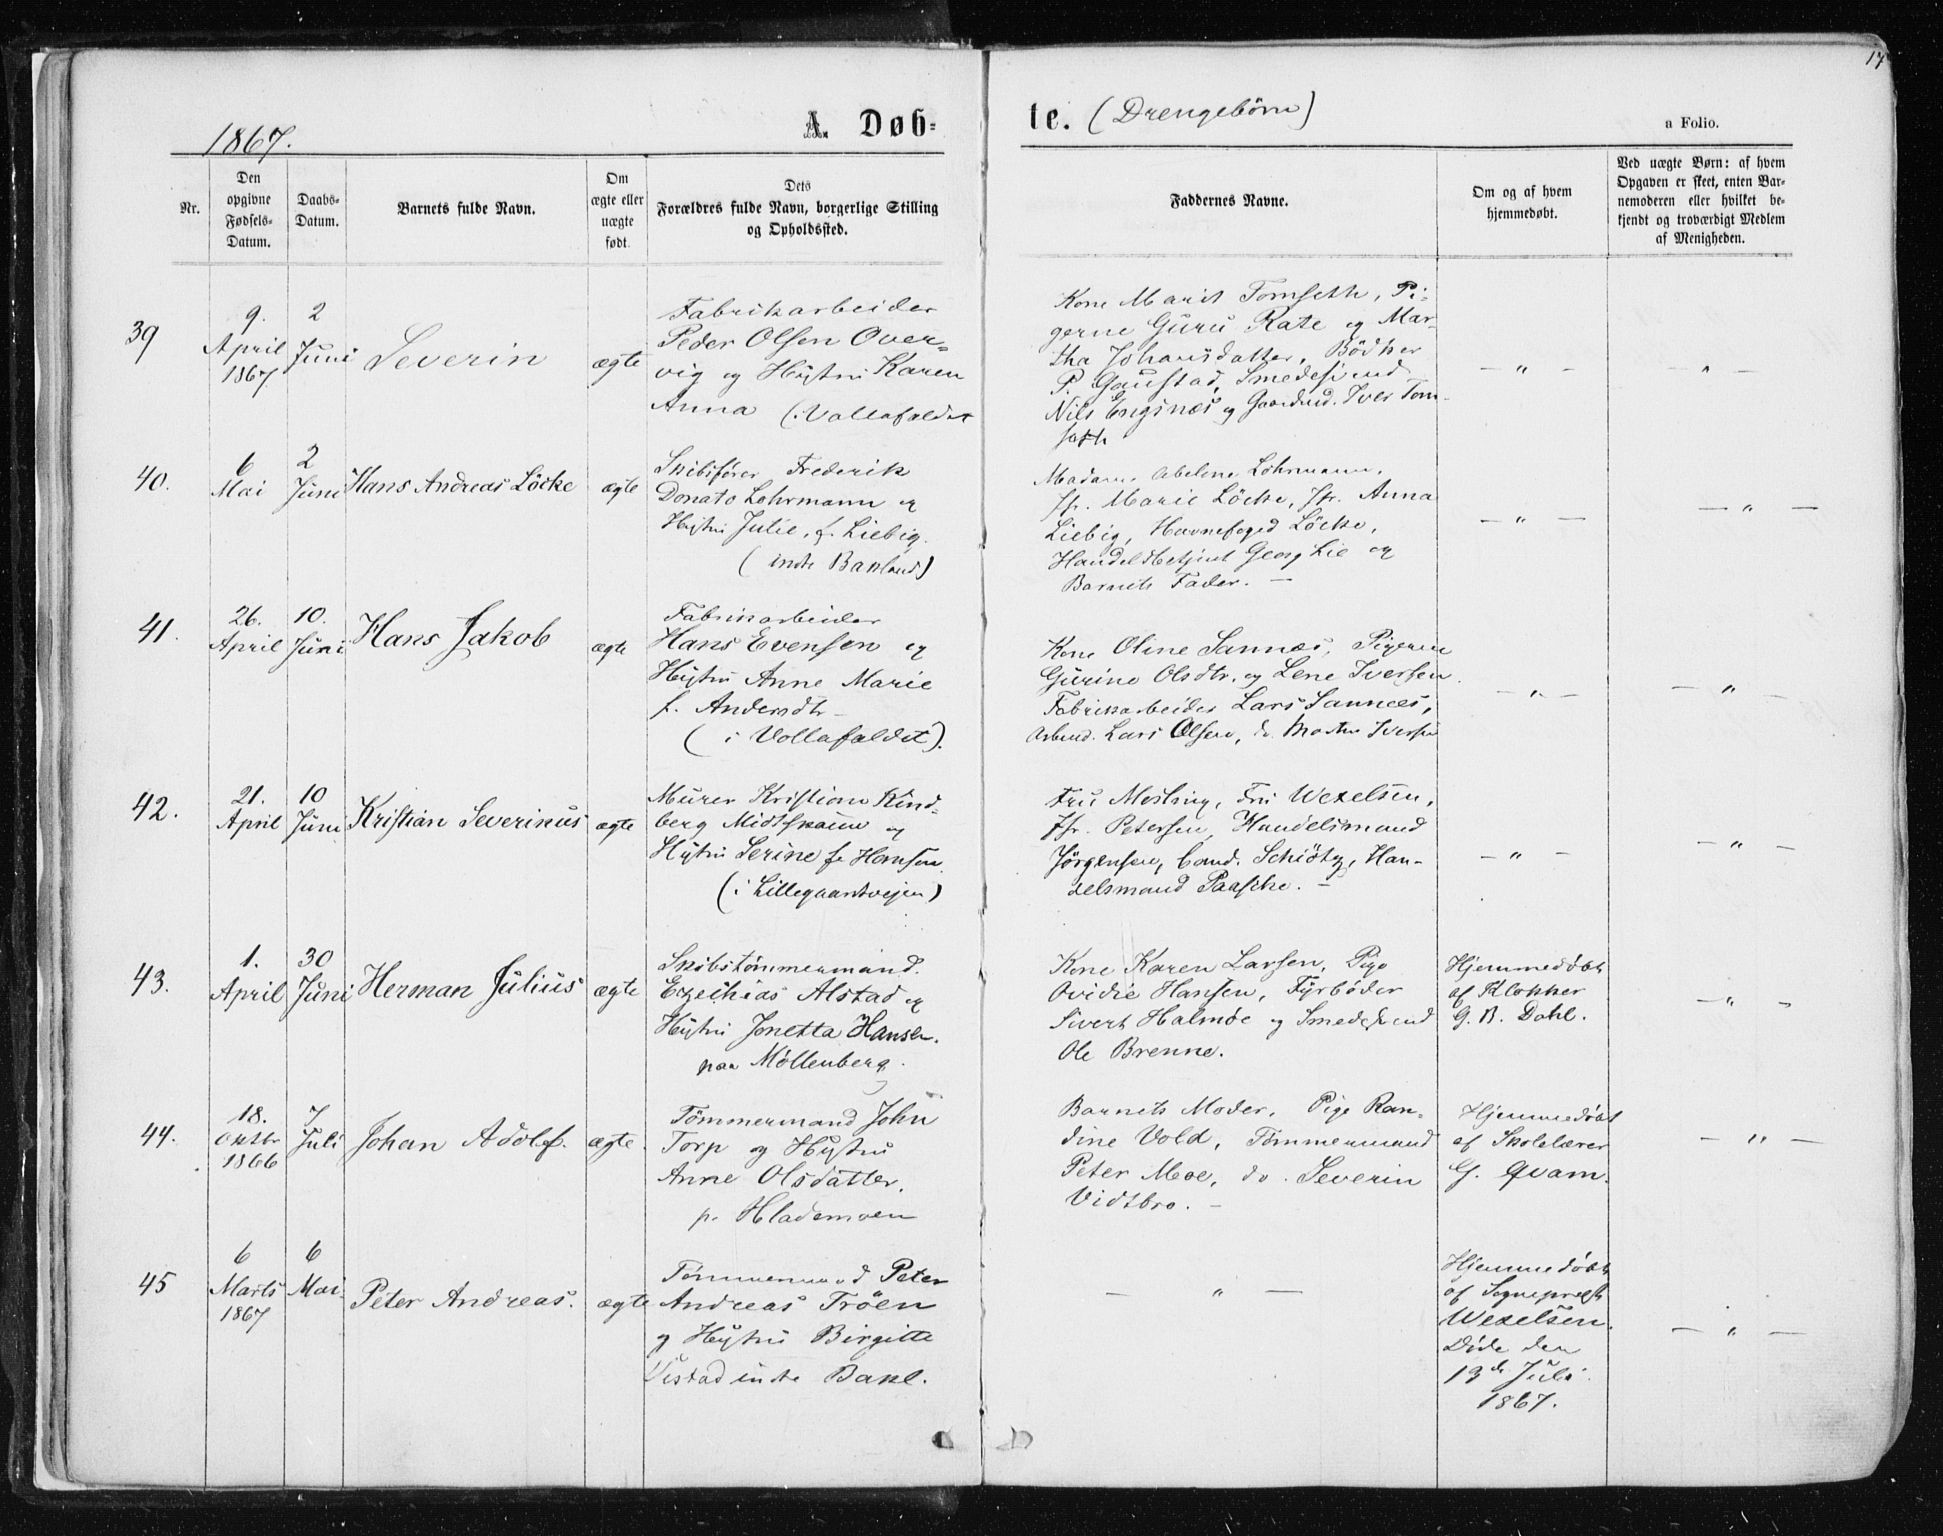 17
1867.
A. Døb-
te. (Drengebørn)
a Folio.
Nr.
Den
opgivne
Fødsels-
Datum.
Daabs-
Datum.
Barnets fulde Navn.
Om
ægte eller
uægte
født.
Dets
Forældres fulde Navn, borgerlige Stilling
og Opholdssted.
Faddernes Navne.
Om og af hvem
hjemmedøbt.
Ved uægte Børn: af hvem
Opgaven er skeet, enten Bar-
nemoderen eller hvilket be-
kjendt og troværdigt Medlem
af Menigheden.
39
9.
April
1867
2
Juni
Severin
ægte
Fabrikarbeider
Peder Olsen Over-
vig og Hustru Karen
Anna (i Vollafaldet
Kone Marit Tomseth, Pi-
gerne Guru Rate og Mar-
tha Johansdatter, Bödker
P. Gaustad, Smedesvend
Nils Engsnes og Gaardmd. Iver Tom-
seth
— " —
" —
40.
6
Mai
2
Juni
Hans Andreas Löcke
ægte
Skibsfører Frederik
Donato Lohrmann og
Hustru Julie, f. Liebig.
(indre Bakland)
Madam Abeline Lohrmann,
Jfr. Marie Löcke, Jfr. Anna
Liebig, Havnefoged Löcke,
Handelsbetjent Georg Lie og
Barnets Fader. —
— " —
— " —
41.
26.
April
10.
Juni
Hans Jakob
ægte
Fabrikarbeider
Hans Evensen og
Hustru Anne Marie
f. Andersdtr
(i Vollafaldet).
Kone Oline Sannæs, Pigerne
Gurine Olsdtr. og Lene Iversen.
Fabrikarbeider Lars Sannæs,
Arbmd. Lars Olsen, do Morten Iversen
— " —
— " —
42.
21.
April
10
Juni
Kristian Severinus
ægte
Murer Kristian Rind-
berg Midtskaun og
Hustru Serine f. Hansen
(i Lillegaardsveien)
Fru Mosling, Fru Wexelsen,
Jfr. Petersen, Handelsmand
Jörgensen, Cand. Schiötz, Han-
delsmand Paasche. —
— " —
— " —
43.
1.
April
30
Juni
Herman Julius
ægte
Skibstömmermand.
Ezechias Alstad og
Hustru Jonetta Hansen.
paa Möllenberg.
Kone Karen Larsen, Pige
Ovidie Hansen, Fyrbøder
Sivert Halmøe og Smedesvend
Ole Brenne.
Hjemmedøbt
af Klokker
G. B. Dahl.
— " —
44.
18.
Oktbr
1866
7
Juli
Johan Adolf.
ægte
Tömmermand John
Torp og Hustru
Anne Olsdatter.
p. Hlademoen
Barnets Moder, Pige Ran-
dine Vold, Tömmermand
Peter Moe, do. Severin
Vidtbro. —
Hjemmedøbt
af Skolelærer
G. Qvam.
— " —
45
6
Marts
1867
6
Mai
Peter Andreas.
ægte
Tömmermand Peter
Andreas Tröen
og Hustru Birgitte
Vistad indre Bakl.
— " —
Hjemmedøbt
af Sogneprest
Wexelsen.
Döde den
13de Juli
1867.
— " —